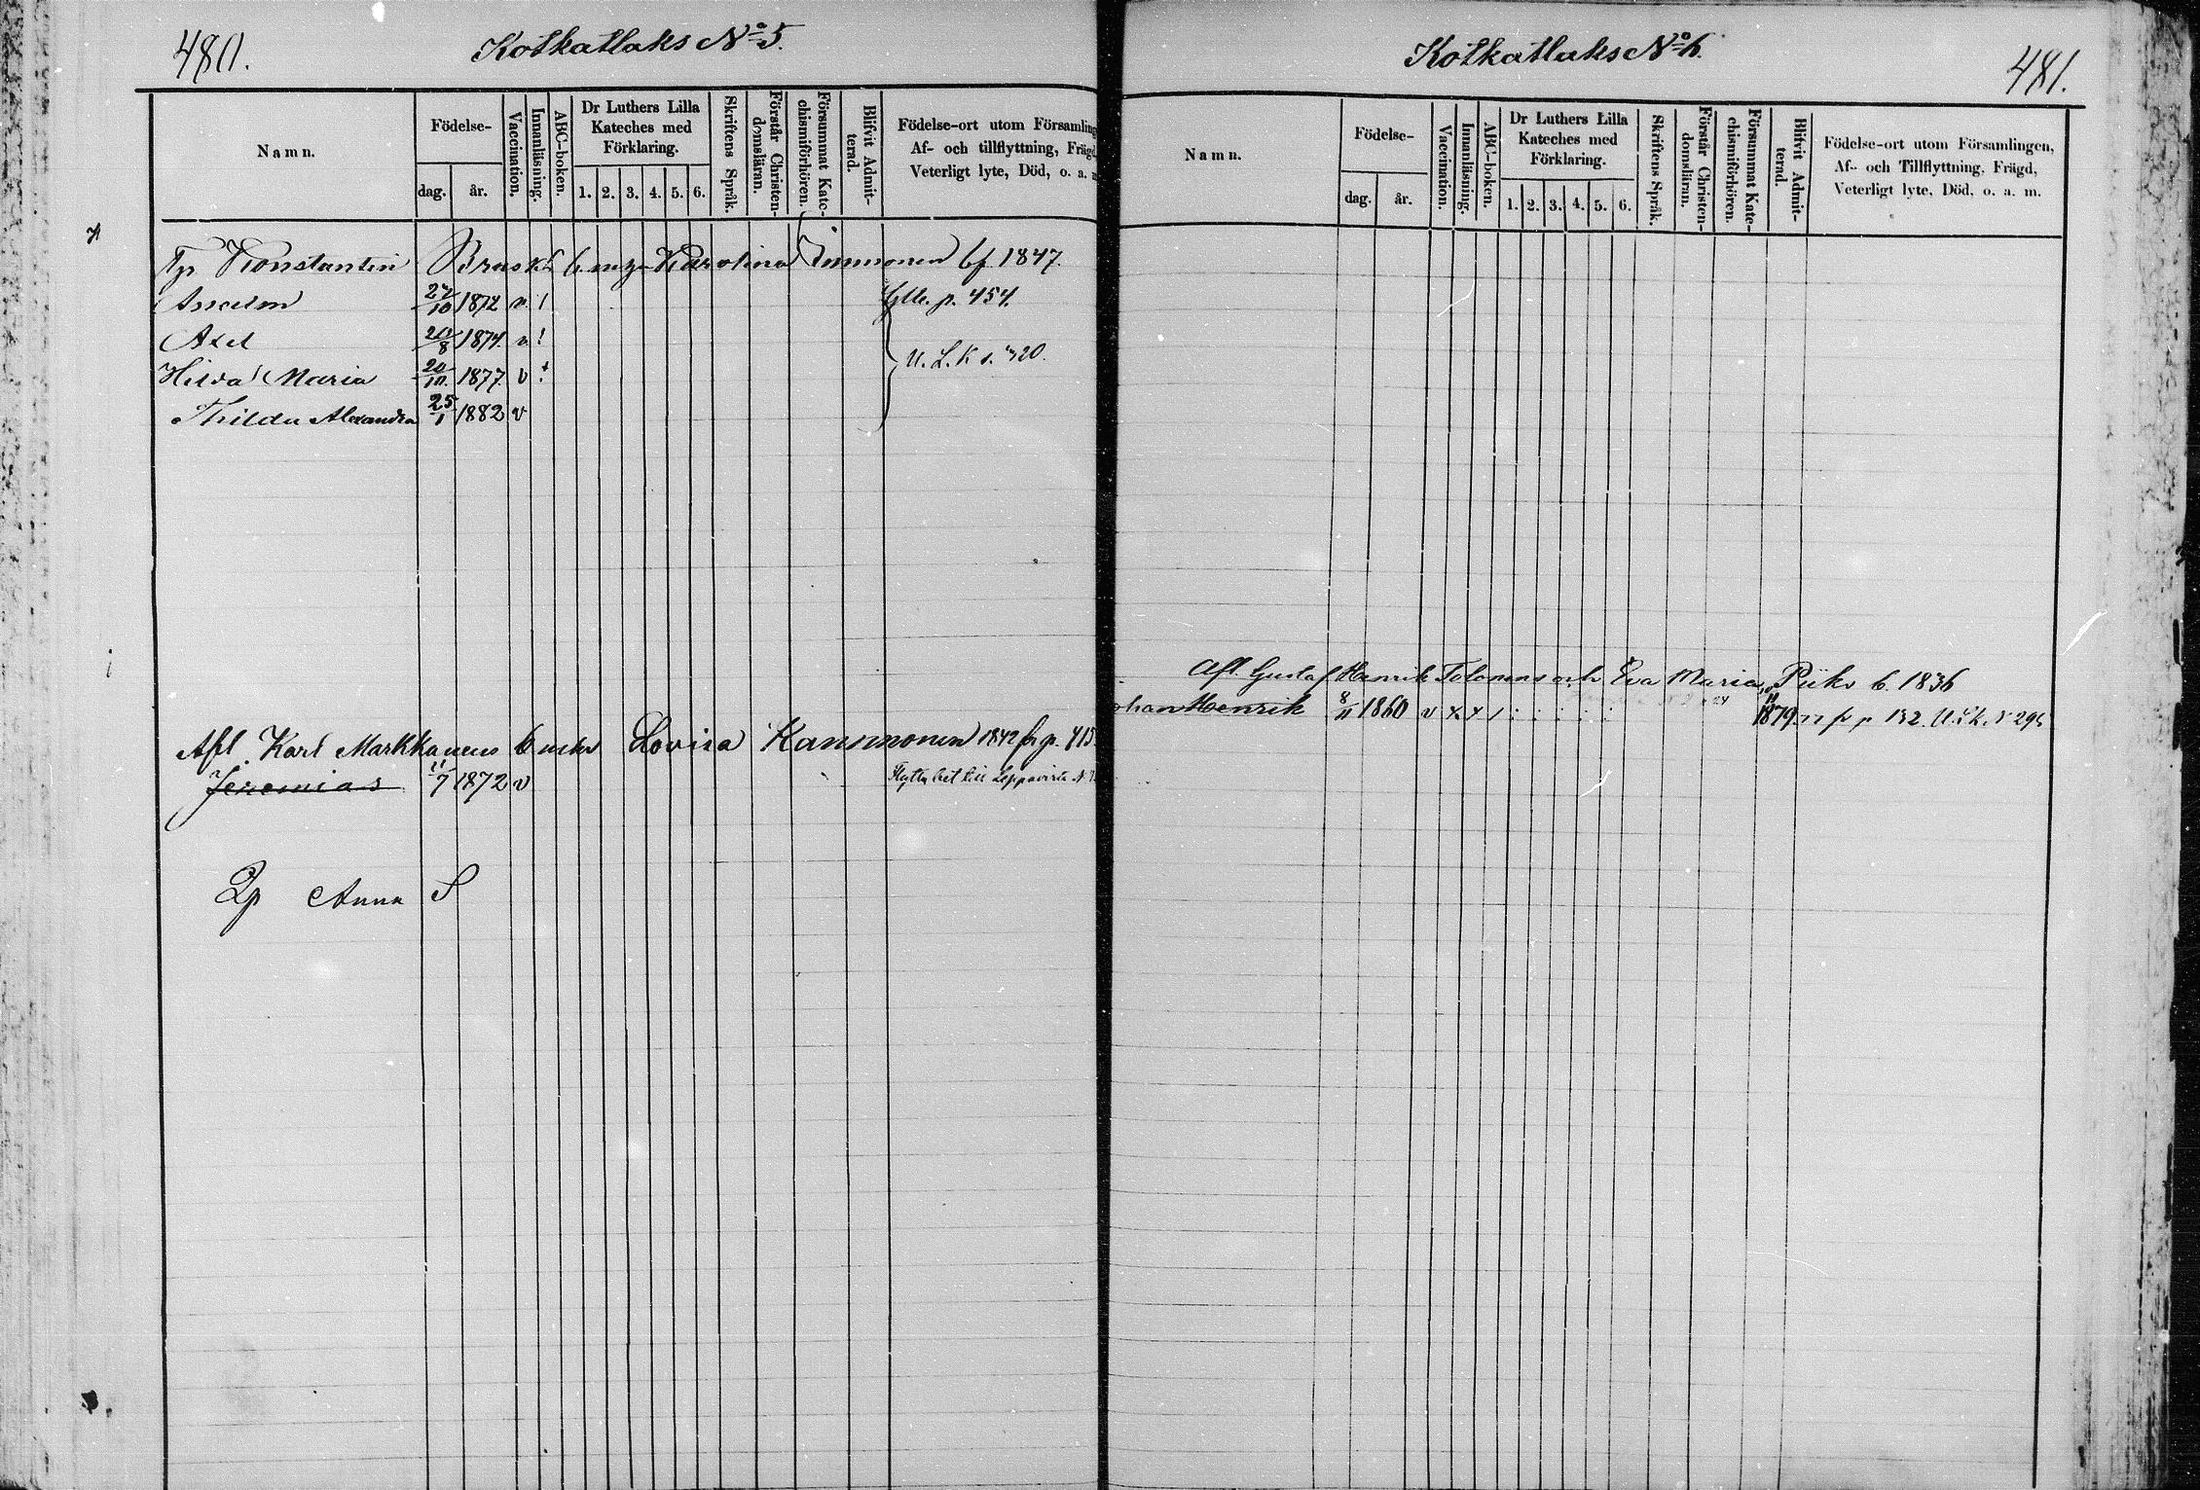 480.
Kotkatlaks No 5.
Namn.
Födelse-
dag.
år.
Vaccination.
Innanläsning.
ABC-boken.
Dr Luthers Lilla
Kateches med
Förklaring.
1. 2. 3. 4. 5. 6.
Skriftens Språk.
Förstår Christen-
domsläran.
Försummat Kate-
chismiförhören.
Blifvit Admit-
terad.
Födelse-ort utom Församling
Af- och tillflyttning, Frägd
Veterligt lyte, Död, o. a. m
Konstantin Karolina Immonen 1847.
Anselm 27/10 1872 v.
p. 454.
Axel 20/8 1874. v
U. L. K s. 320.
Hilda Maria 20/10 1877. v
Thilda Alexandra 25/1 1882 v
Afl. Karl Markkanens Lovisa 1842 fr p. 415
Jeremias 11/7 1872 v
till Leppävirta N
Anna S
Kotkatlaks No 6.
481.
Namn.
Födelse-
dag.
år.
Vaccination.
Innanläsning.
ABC-boken.
Dr Luthers Lilla
Kateches med
Förklaring.
1. 2. 3. 4. 5. 6.
Skriftens Språk.
Förstår Christen-
domsläran.
Försummat Kate-
chismiförhören.
Blifvit Admit-
terad.
Födelse-ort utom Församlingen,
Af- och Tillflyttning, Frägd,
Veterligt lyte, Död, o. a. m.
Afl. Gustaf Henrik Tolonens och Eva Maria 1836
ohan Henrik 8/11 1860 v x x 1879 p 132.